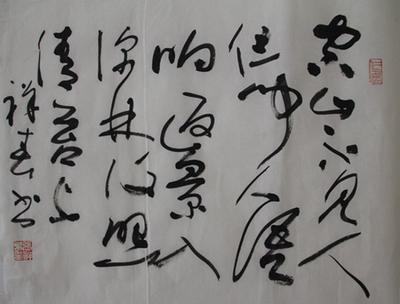 空山不见人
但闻人语
响返景入
深林复照
青苔上
祥春书